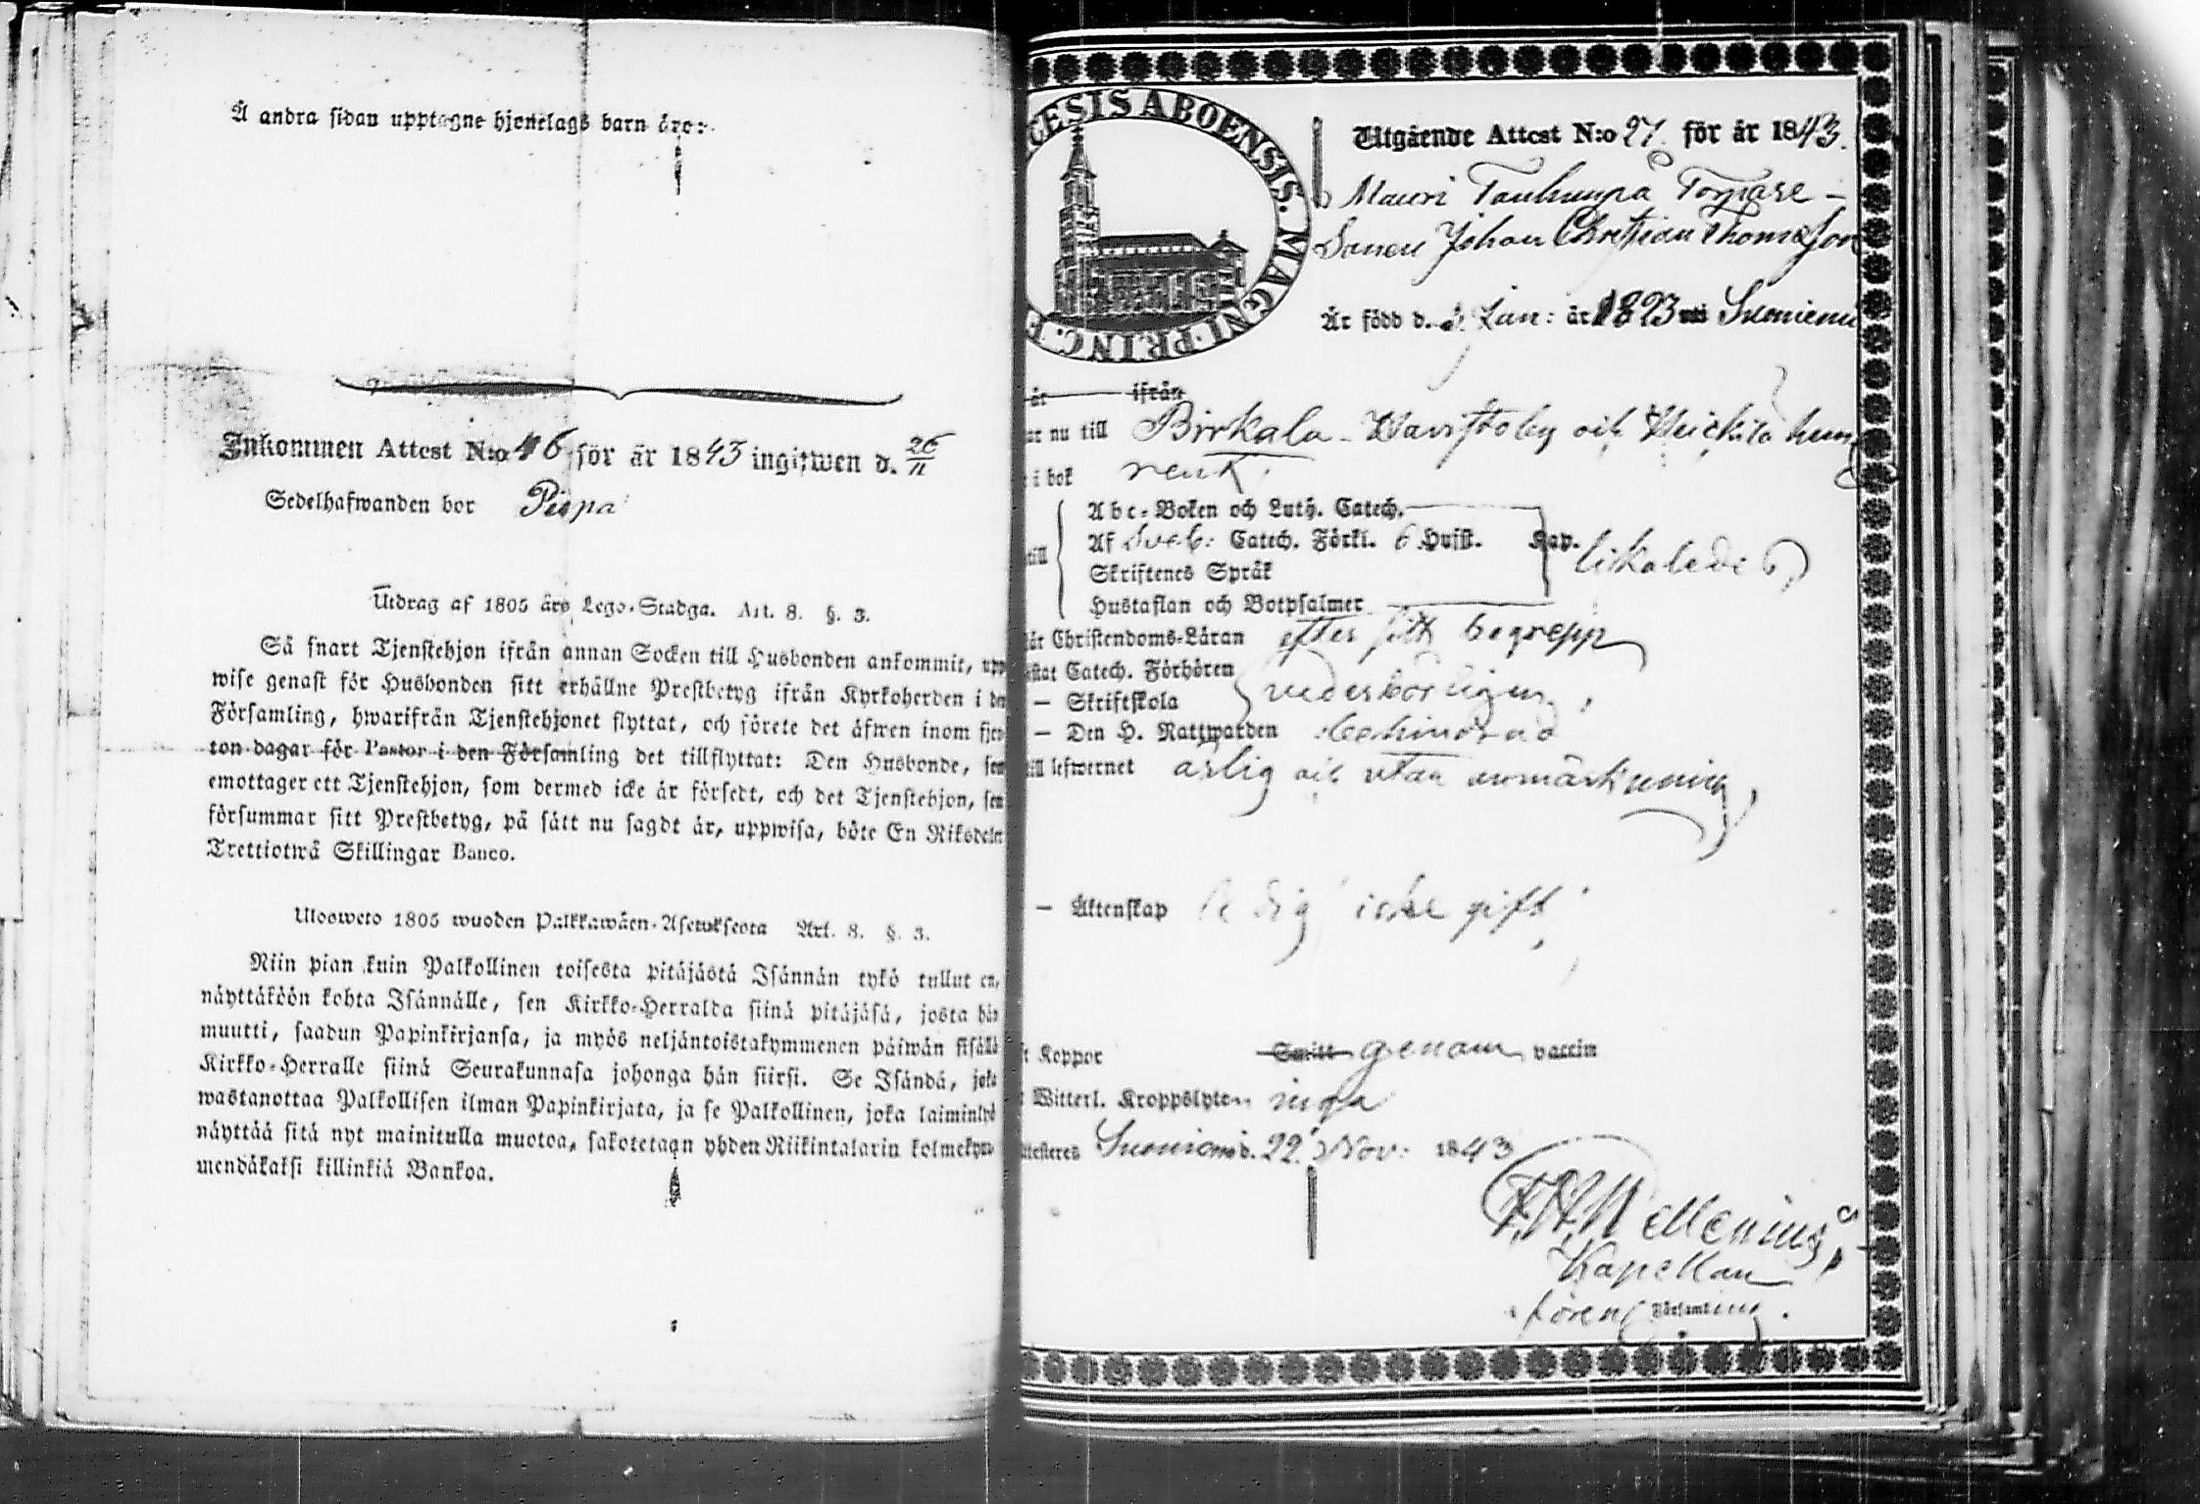 Å andra sidan upptagne hjonelags barn äro:
Inkommen Attest N:o 46 för år 1843 ingifwen d. 26/11
Sedelhafwanden bor Pispa
Utdrag af 1805 års Lego-Stadga. Art. 8. §. 3.
Så snart Tjenstehjon ifrån annan Socken till Husbonden ankommit, upp
wise genast för Husbonden sitt erhållne Prestbetyg ifrån Kyrkoherden i den
Församling, hwarifrån Tjenstehjonet flyttat, och förete det äfwen inom fjor-
ton dagar för Pastor i den Församling det tillflyttat: Den Husbonde, som
emottager ett Tjenstehjon, som dermed icke är försedt, och det Tjenstehjon, som
försummar sitt Prestbetyg, på sätt nu sagdt är, uppwisa, böte En Riksdaler
Trettiotwå Skillingar Banco.
Ulosweto 1805 wuoden Palkkawäen-Asetuksesta Art. 8. §. 3.
Niin pian kuin Palkollinen toisesta pitäjästä Isännän tykö tullut on,
näyttäköön kohta Isännälle, sen Kirkko-Herralda siinä pitäjäsä, josta hän
muutti, saadun Papinkirjansa, ja myös neljäntoistakymmenen päiwän sisällä
Kirkko-Herralle siinä Seurakunnasa johonga hän siirsi. Se Isändä, joka
wastanottaa Palkollisen ilman Papinkirjata, ja se Palkollinen, joka laiminlyö
näyttää sitä nyt mainitulla muotoa, sakotetaqn yhden Riikintalarin kolmekym-
mendäkaksi killinkiä Bankoa.
CESIS ABOENSIS. MAGNI. PRINC. F
Utgående Attest N:o 27 för år 1843.
Mauri Tomase-
Sonen Johan Christian Thomasson
Är född d. Jan: år 1823 Suoniemi
år ifrån
ar nu till Birkala Haristoby och
i bok rent
till
Abc-Boken och Luth. Catech.
Af Sveb: Catech. Förkl. 6 Hufst. Kap. likaledes
Skriftenes Språk
Hustaflan och Botpsalmer
är Christendoms-Läran efter sitt begrepp
istat Catech. Förhören
— Skriftskola vederbörligen
— Den H. Nattwarden obehindrad
till lefwernet ärlig och utan anmärkning,
— Äktenskap ledig icke gift,
t Koppor Smitt genom vaccin
Witterl. Kroppslyten inga
ttesteres Suoniemi d. 22 Nov: 1843
Mellenius,
Kapellan
Församling.